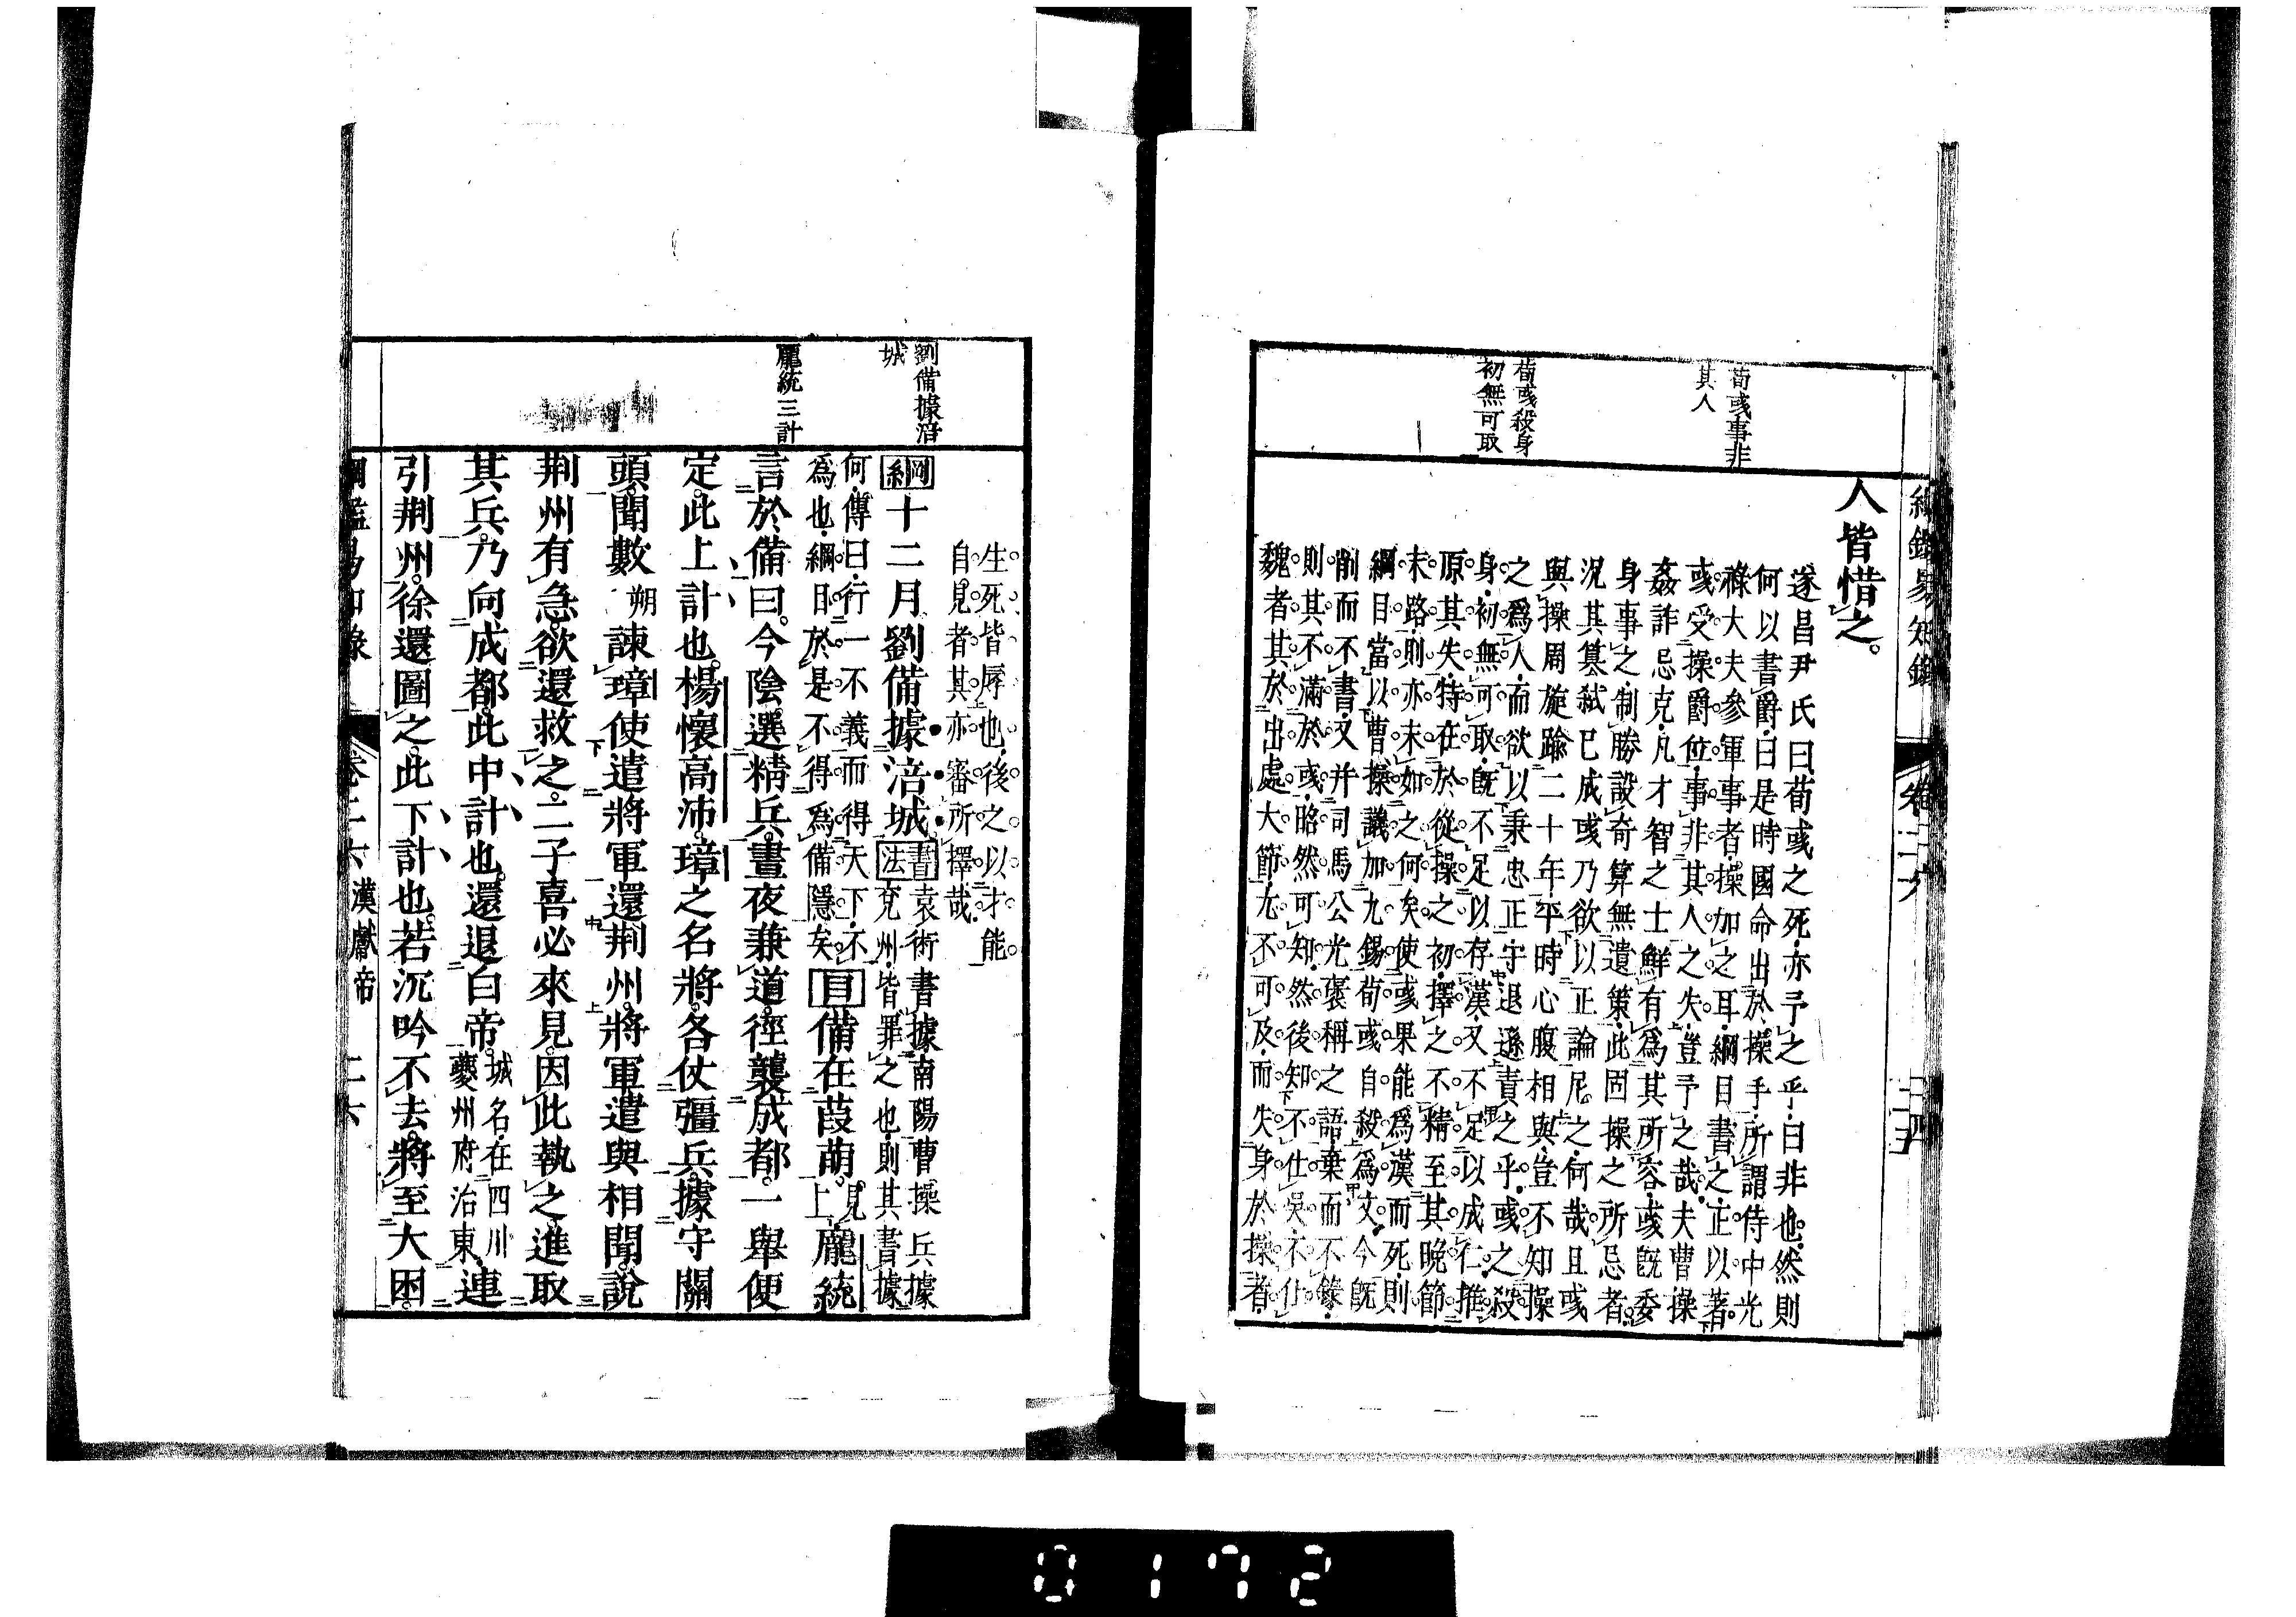 綱鑑易知錄
卷二十六
荀彧事非
其人
荀彧殺身
初無可取
人皆惜之。
遂昌尹氏曰荀彧之死亦予之乎曰非也然則
何以書爵曰是時國命出於操手所謂侍中光
祿大夫參軍事者操加之耳綱目書之正以著
彧受操爵位事非其人之失豈予之哉夫曹操
姦詐忌克凡才智之士鮮有爲其所容彧既委
身事之制勝設奇算無遺策此固操之所忌者
況其篡弑已成彧乃欲以正論尼之何哉且彧
與操周旋踰二十年平時心腹相與豈不知操
之爲人而欲以秉忠正守退遜責之乎彧之殺
身初無可取既不足以存漢又不足以成仁推
原其失特在於從操之初擇之不精至其晚節
末路則亦末如之何矣使彧果能爲漢而死則
綱目當以曹操議加九錫荀彧自殺爲文今既
削而不書又并司馬公光襃稱之語棄而不錄
則其不滿於彧昭然可知然後知不仕吳不仕
魏者其於出處大節尤不可及而失身於操者
劉備據涪
城
龐統三計
生死皆辱也後之以才能
自見者其亦審所擇哉
綱十二月劉備據涪城書法袁術書據南陽曹操兵據
兗州皆罪之也則其書據
何傳曰行一不義而得天下不
爲也綱目於是不得爲備隱矣目備在葭萌見上龐統
言於備曰今陰選精兵晝夜兼道徑襲成都一舉便
定此上計也楊懷高沛璋之名將各仗彊兵據守關
頭聞數朔諫璋使遣將軍還荆州將軍遣與相聞說
荆州有急欲還救之二子喜必來見因此執之進取
其兵乃向成都此中計也還退白帝城名在四川
夔州府治東連
引荆州徐還圖之此下計也若沉吟不去將至大困
綱鑑易知錄 卷二十六漢獻帝 二六
0172